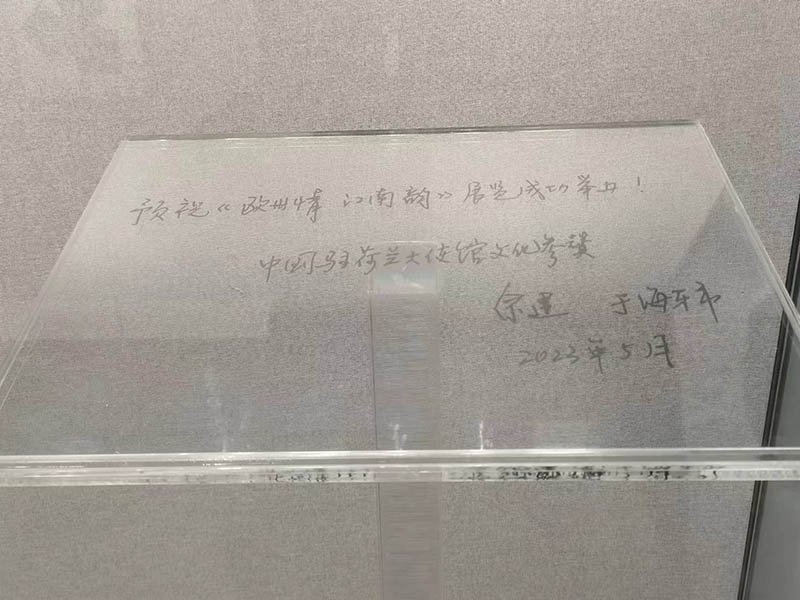 预祝《欧州情 江南韵》展览成功举办！
中国驻荷兰大使馆文化参赞
于海牙市
2023年5月